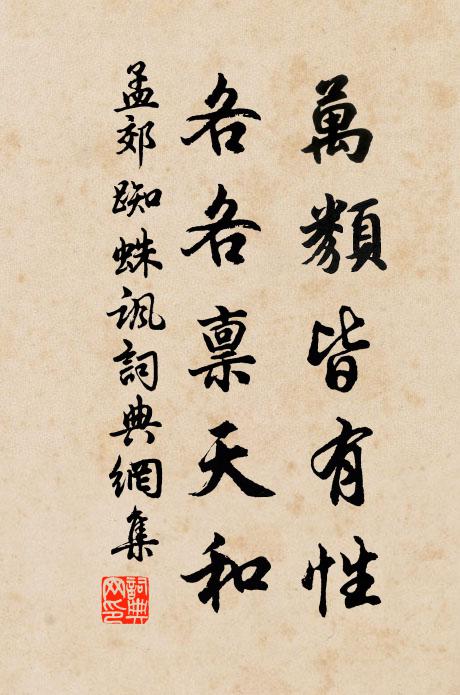 萬類皆有性
各各稟天和
孟郊蜘蛛諷詞典網集
詞典網印